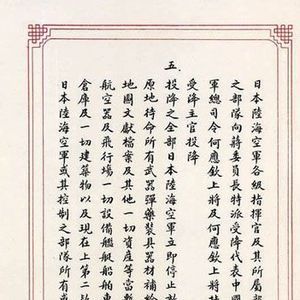 日本陸海空軍各級指揮官及其所屬部
之部隊向蔣委員長特派受降代表中國
軍總司令何應欽上將及何應欽上將
受降主官投降
五、
投降之全部日本陸海空軍立即停止敵
原地待命所有武器彈藥裝具器材補給
地圖文獻檔案及其他一切資產等當暫
航空器及飛行場一切設備艦艇船舶車
倉庫及一切建築物以及現在上第二款
日本陸海空軍或其控制之部隊所有或